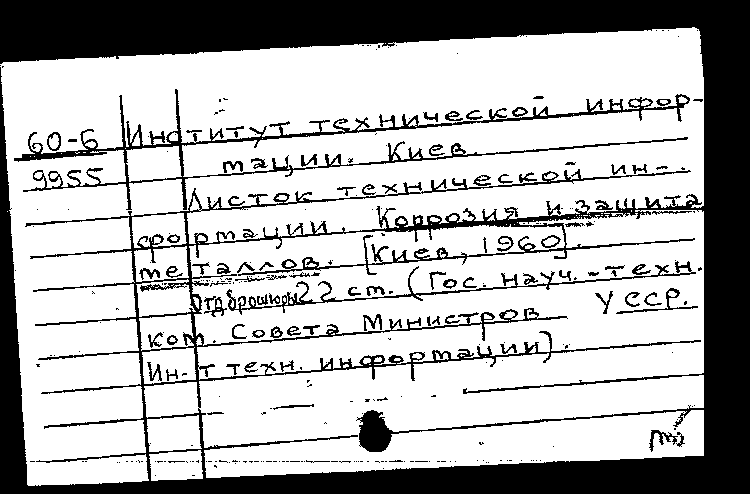 60-Б Институт технической инфор-
9955 мации. Киев.
Листок технической ин-
формации. Коррозия и защита
металлов. [Киев, 1960].
Отд брошюры 22 ст. (Гос. науч.-техн.
ком. Совета Министров УССР.
Ин-т техн. информации).